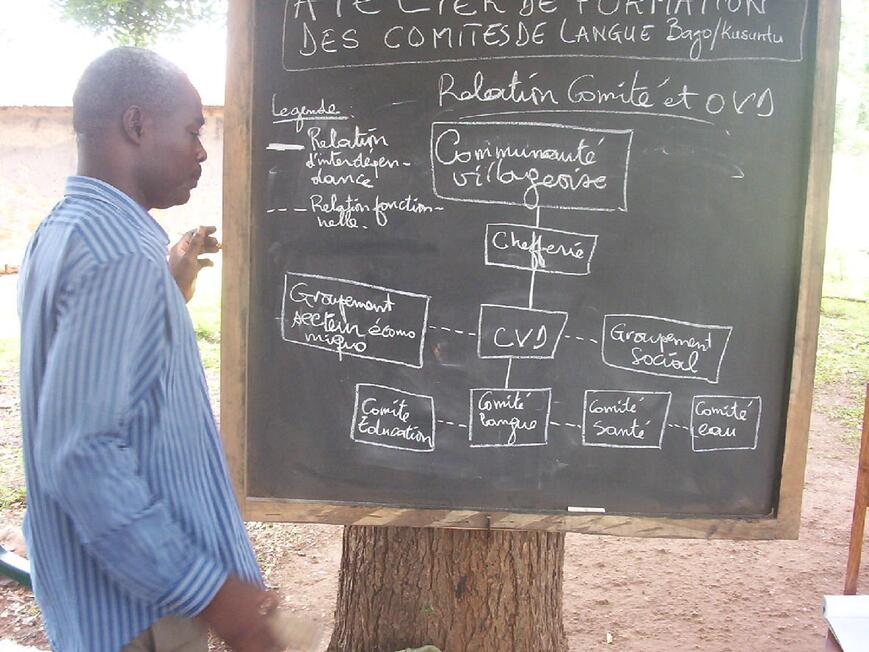 ATELIER DE FORMATION
DES COMITES DE LANGUE Bago/Kusuntu
Relation Comité et CVD
Legende :
Relation
d'interdépen-
dance
Relation fonction-
nelle.
Communauté
villageoise
Chefferie
Groupement
secteur écono
mique
CVD
Groupement
Social
Comité
Éducation
Comité
langue
Comité
Santé
Comité
eau